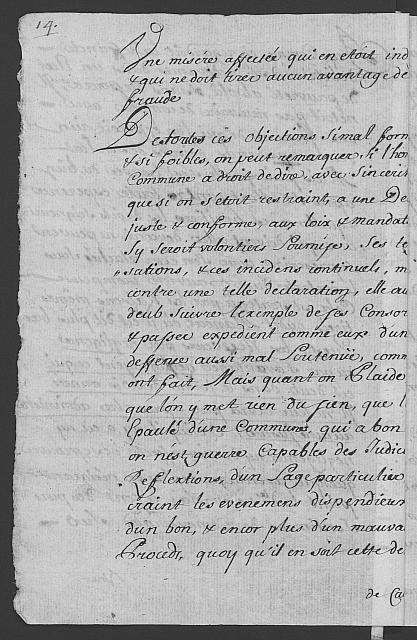 14.
Une misére affectée qui en etoit ind
& qui ne doit tirer aucun avantage de
fraude
De toutes ces objections si mal form
& si foibles, on peut remarquer, si l'hon
Commune a droit de dire, avec sincerit
que si on s'etoit restraint, a une De
juste & conforme, aux loix & mandat
s'y seroit volontiers soumise, ses te
sations, & ces incidens continuels, m
contre une telle declaration, elle au
deub suivre l'exemple de ses Consor
& passer expedient comme eux d'un
deffence aussi mal soutenüe, comm
ont fait, Mais quant on Plaide
que l'on y met rien du sien, que l
Epaulé d'une Commune, qui a bon
on n'est guerre Capables des Judici
Reflextions, d'un sage particulier
craint les evenemens dispendieux
d'un bon, & encor plus d'un mauva
Procedé, quoy qu'il en soit cette de
de Ca